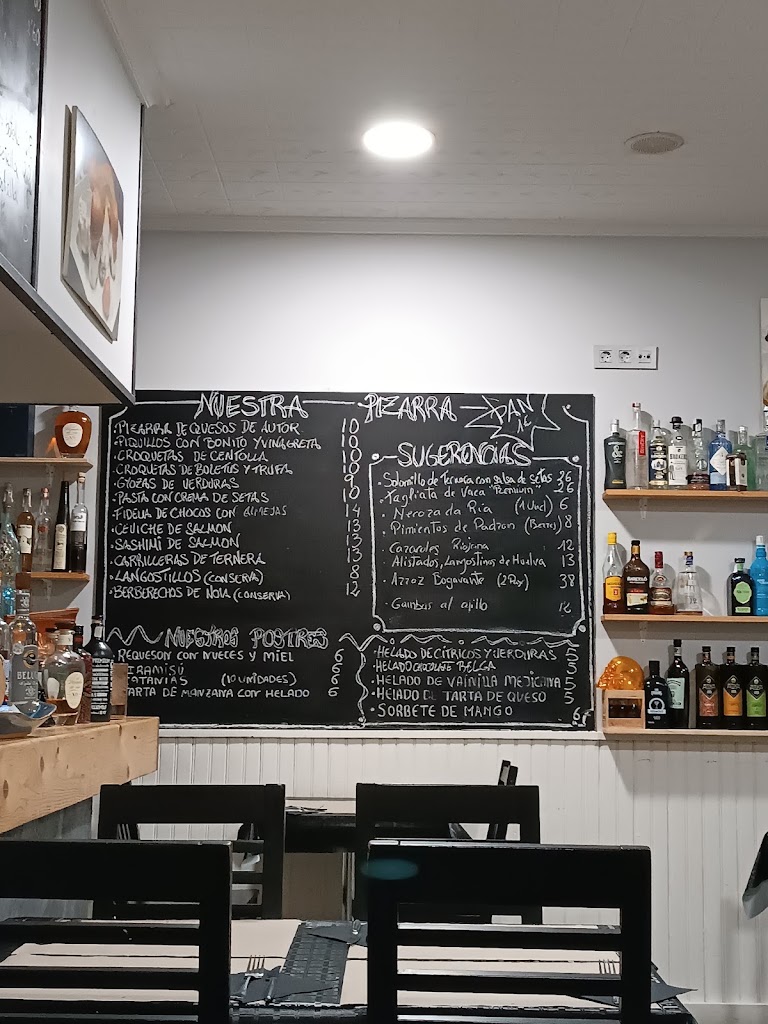 NUESTRA PIZARRA
PIZARRA DE QUESOS DE AUTOR 10
PIQUILLOS CON BONITO Y VINAGRETA 10
CROQUETAS DE CENTOLLA 10
CROQUETAS DE BOLETUS Y TRUFA 10
GYOZAS DE VERDURAS 9
PASTA CON CREMA DE SETAS 10
FIDEUA DE CHOCOS CON ALMEJAS 14
CEVICHE DE SALMON 13
SASHIMI DE SALMON 13
CARRILLERAS DE TERNERA 13
LANGOSTILLOS (CONSERVA) 8
BERBERECHOS DE NOIA (CONSERVA) 12
SUGERENCIAS
Solomillo de Ternera con salsa de setas 26
Tagliata de Vaca "Premium" 26
Necoza da Ria (1 Und) 6
Pimientos de Padron (Berres) 8
Cazacoles Riojana 12
Alistados, Langostinos de Huelva 13
Arroz Bogavante (2 Pax) 38
Gambas al ajillo 12
NUESTROS POSTRES
REQUESON CON NUECES Y MIEL 6
TIRAMISÚ 6
TATANIAS (10 UNIDADES) 6
TARTA DE MANZANA CON HELADO 6
HELADO DE CITRICOS Y VERDURAS 5
HELADO CHOCOLATE BELGA 5
HELADO DE VAINILLA MEJICANA 5
HELADO DE TARTA DE QUESO 5
SORBETE DE MANGO 6